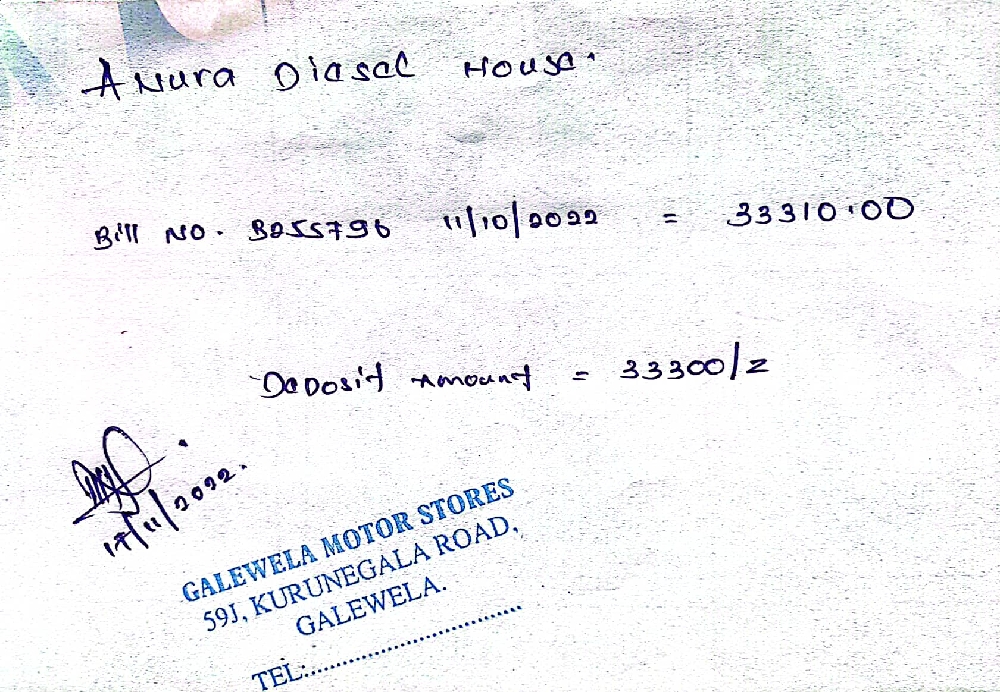 Anura Diasal House.
Bill No. B255796 11/10/2022 = 33310.00
Daposit Amount = 33300/=
17/11/2022.
GALEWELA MOTOR STORES
59J, KURUNEGALA ROAD,
GALEWELA.
TEL:..............................